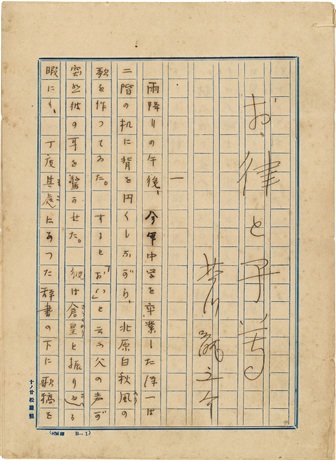 お律と子等
芥川龍之介
一
雨降りの午後、今年中学を卒業した洋一は
二階の机に背を円くしながら、北原白秋風の
歌を作つてゐた。すると「おい」と云ふ父の声が
突然彼の耳を驚かせた。彼は倉皇と振り返る
暇にも、丁度其處にあつた辞書の下に歌稿を
十ノ廿 松屋製